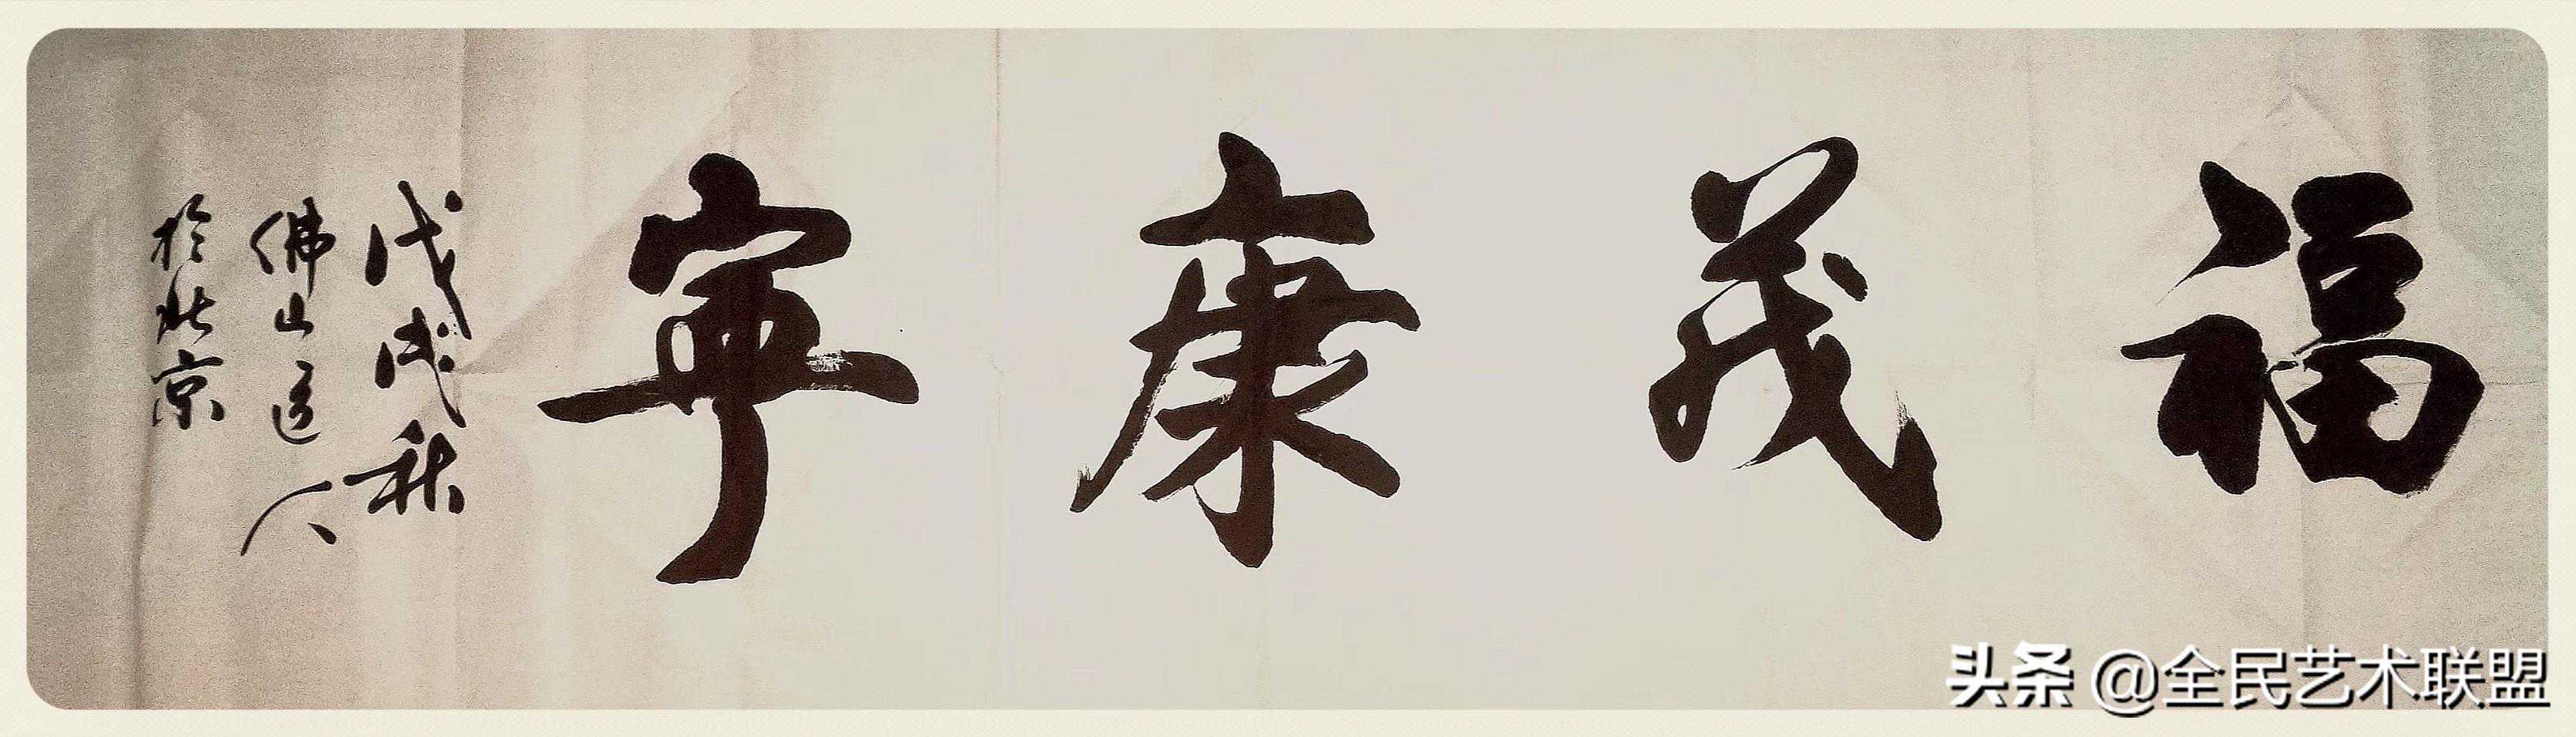 福茂康寧
戊戌秋
佛山道人
於北京
头条 @全民艺术联盟